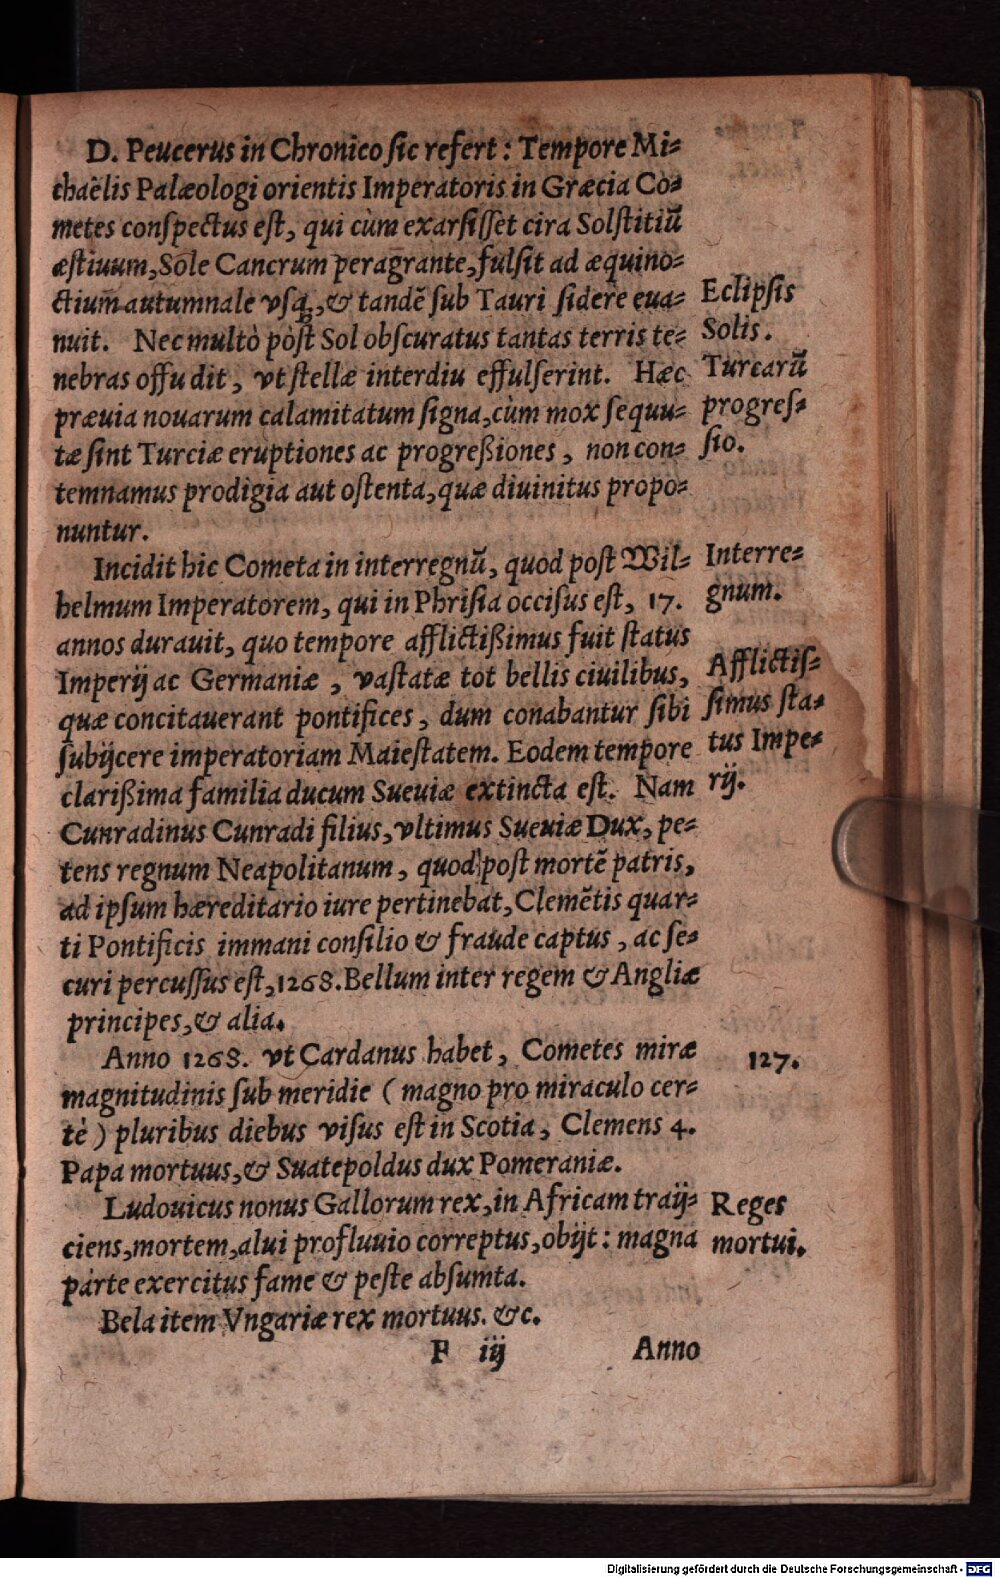 D. Peucerus in Chronico ſic refert: Tempore Mi⸗
chaëlis Palæologi orientis Imperatoris in Græcia Co⸗
metes conſpectus eſt, qui cùm exarſiſſet cira Solſtitiũ
æſtiuum, Sole Cancrum peragrante, fulſit ad æquino⸗
ctium autumnale vſq;, & tandẽ ſub Tauri ſidere eua⸗
nuit. Nec multò pòſt Sol obſcuratus tantas terris te⸗
nebras offudit, vt ſtellæ interdiu effulſerint. Hæc
præuia nouarum calamitatum ſigna, cùm mox ſequu⸗
tæ ſint Turciæ eruptiones ac progreßiones, non con⸗
temnamus prodigia aut oſtenta, quæ diuinitus propo⸗
nuntur.
Eclipſis
Solis.
Turcarũ
progreſ⸗
ſio.
Incidit hic Cometa in interregnũ, quod poſt Wil⸗
helmum Imperatorem, qui in Phriſia occiſus eſt, 17.
annos durauit, quo tempore afflictißimus fuit ſtatus
Imperij ac Germaniæ, vaſtatæ tot bellis ciuilibus,
quæ concitauerant pontifices, dum conabantur ſibi
ſubijcere imperatoriam Maieſtatem. Eodem tempore
clarißima familia ducum Sueuiæ extincta eſt. Nam
Cunradinus Cunradi filius, vltimus Sueuiæ Dux, pe⸗
tens regnum Neapolitanum, quod poſt mortẽ patris,
ad ipſum hæreditario iure pertinebat, Clemẽtis quar⸗
ti Pontificis immani conſilio & fraude captus, ac ſe⸗
curi percuſſus eſt, 1268. Bellum inter regem & Angliæ
principes, & alia.
Interre⸗
gnum.
Afflictiſ⸗
ſimus ſta⸗
tus Impe⸗
rij.
Anno 1268. vt Cardanus habet, Cometes miræ
magnitudinis ſub meridie ( magno pro miraculo cer⸗
tè ) pluribus diebus viſus eſt in Scotia, Clemens 4.
Papa mortuus, & Suatepoldus dux Pomeraniæ.
127.
Ludouicus nonus Gallorum rex, in Africam traij⸗
ciens, mortem, alui profluuio correptus, obijt: magna
parte exercitus fame & peſte abſumta.
Reges
mortui.
Bela item Vngariæ rex mortuus. &c.
F iij Anno
Digitalisierung gefördert durch die Deutsche Forschungsgemeinschaft - DFG